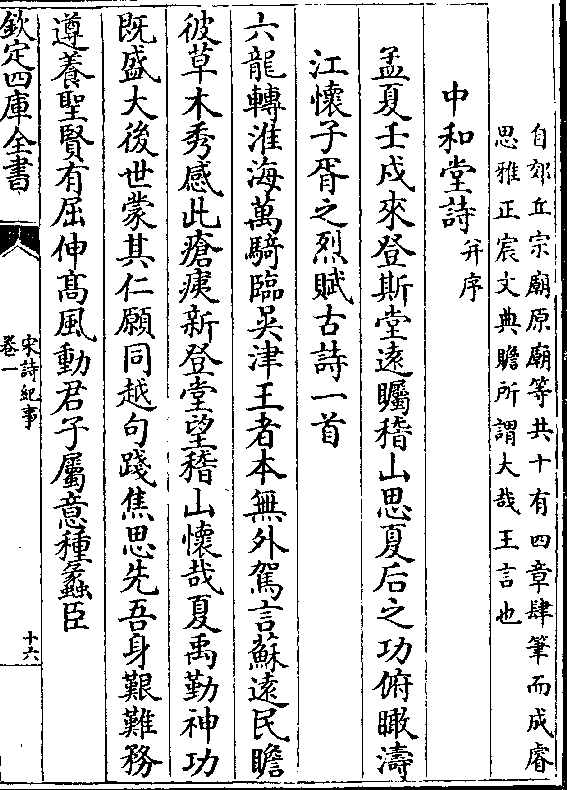 自郊丘宗廟原廟等共十有四章肆筆而成睿
思雅正宸文典贍所謂大哉王言也
中和堂詩并序
孟夏壬戍來登斯堂遠矚稽山思夏后之功俯瞰濤
江懷子胥之烈賦古詩一首
六龍轉淮海萬騎臨吳津王者本無外駕言蘇遠民瞻
彼草木秀感此瘡痍新登堂望稽山懷哉夏禹勤神功
既盛大後世蒙其仁願同越句踐焦思先吾身艱難務
遵養聖賢有屈伸高風動君子屬意種蠡臣
欽定四庫全書
宋詩紀事
卷一
十六